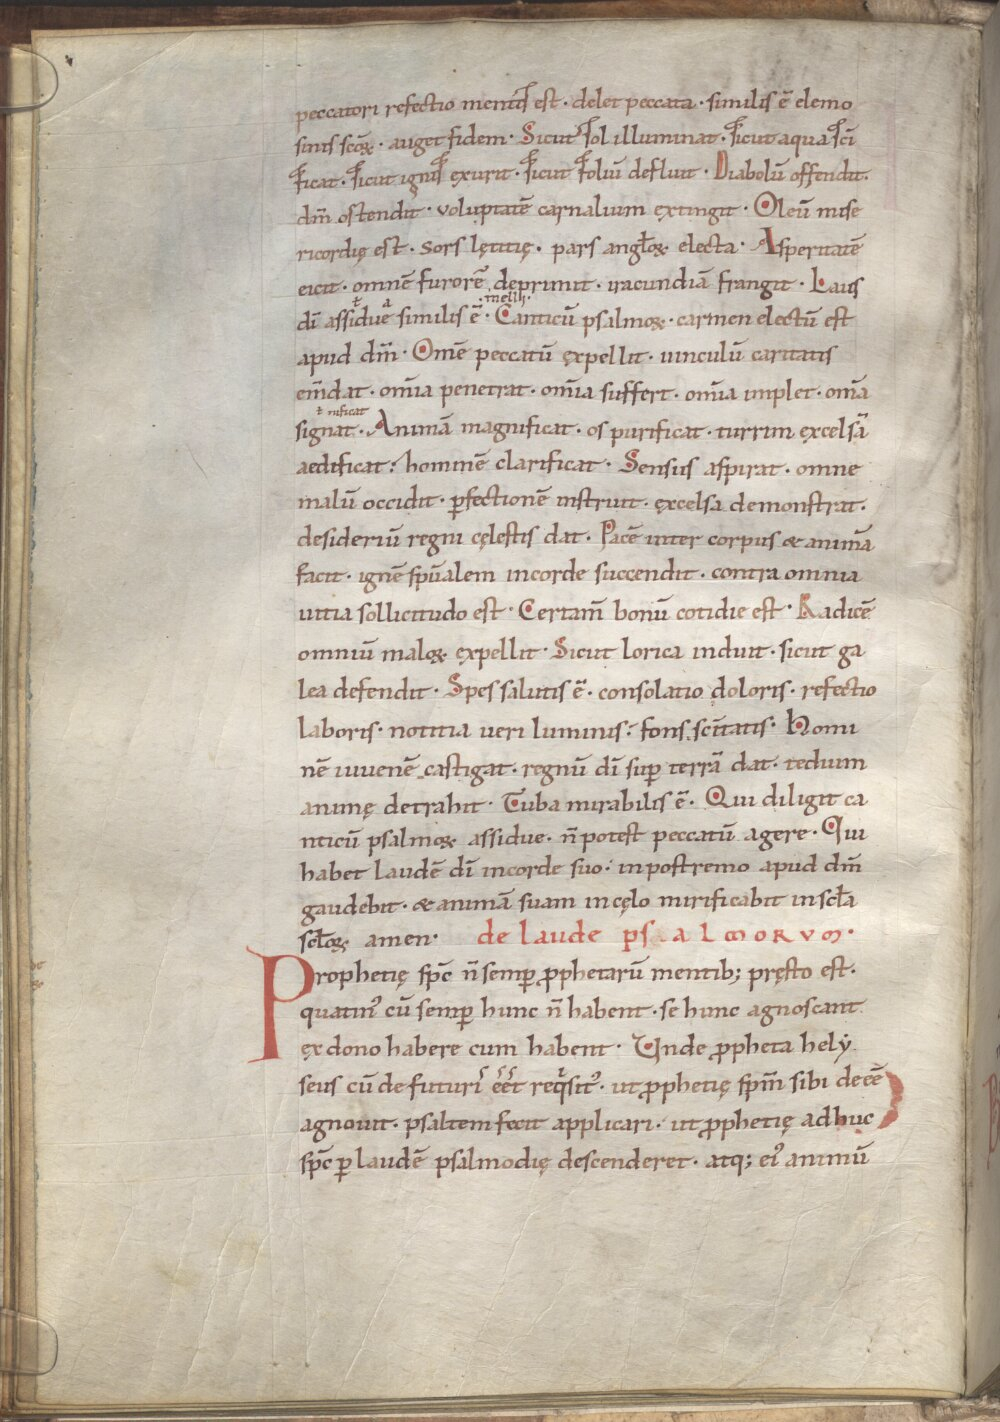 peccatori refectio mentis est · delet peccata · similis ē elemo
sinis scōꝝ · auget fidem · Sicut sol illuminat · sicut aqua sci
ficat · sicut ignis exurit · sicut foliū defluit · Diabolū offendit ·
dm̄ ostendit · voluptatē carnalium extingit · Oleū mise
ricordię est · sors lętitię · pars angl̄oꝝ electa · Asperitatē
eicit · omnē furorē deprimit · iracundiā frangit · Laus
· mellis ·
dī assidue similis ē · Canticū psalmoꝝ · carmen electū est
apud dm̄ · Om̄e peccatū expellit · uinculū caritatis
em̄dat · om̄ia penetrat · om̄ia suffert · om̄ia implet · om̄a
ł nificat
signat · Animā magnificat · os purificat · turrim excelsā
aedificat : hominē clarificat · Sensus aspirat · omne
malū occidit · ꝑfectionē instruit · excelsa demonstrat ·
desideriū regni cęlestis dat · Pacē inter corpus & animā
facit · ignē spūalem incorde succendit · contra omnia
uitia sollicitudo est · Certam̄ bonū cotidie est · Radicē
omniū maloꝝ expellit · Sicut lorica induit · sicut ga
lea defendit · Spes salutis ē · consolatio doloris · refectio
laboris · notitia ueri luminis : fons sc̄itatis · Homi
nē iuuenē castigat · regnū dī suꝑ terrā dat · tedium
animę detrahit · Tuba mirabilis ē · Qui diligit ca
nticū psalmoꝝ assidue · n̄ potest peccatū agere · Qui
habet laudē dī incorde suo · inpostremo apud dm̄
gaudebit · & animā suam incęlo mirificabit in scl̄a
scl̄oꝝ amen · de laude psalmorum ·
Prophetię sp̄c n̄ semꝑ ꝓphetarū mentib; pręsto est ·
quatin᾿ cū semꝑ hunc n̄ habent · se hunc agnoscant
ex dono habere cum habent · Unde ꝓpheta hely
seus cū de futuri eēt reqͥsit᾿ · ut ꝓphetię spm̄ sibi deeē
agnouit · psaltem fecit applicari · ut ꝓphetię adhuc
sp̄c ꝑ laudē psalmodię descenderet · atq; ei᾿ animū